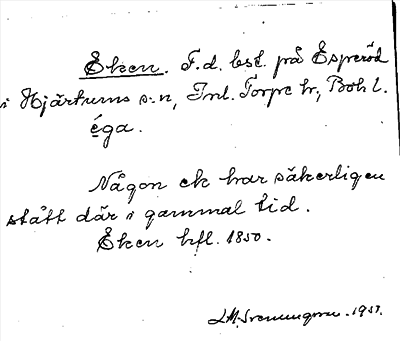 Eken. F.d. bst. på Esperöd
i Hjärtums s:n, Inl. Torpe hr, Boh l.
éga.
Någon ek har säkerligen
stått där i gammal tid.
Eken hfl. 1850.
1951.